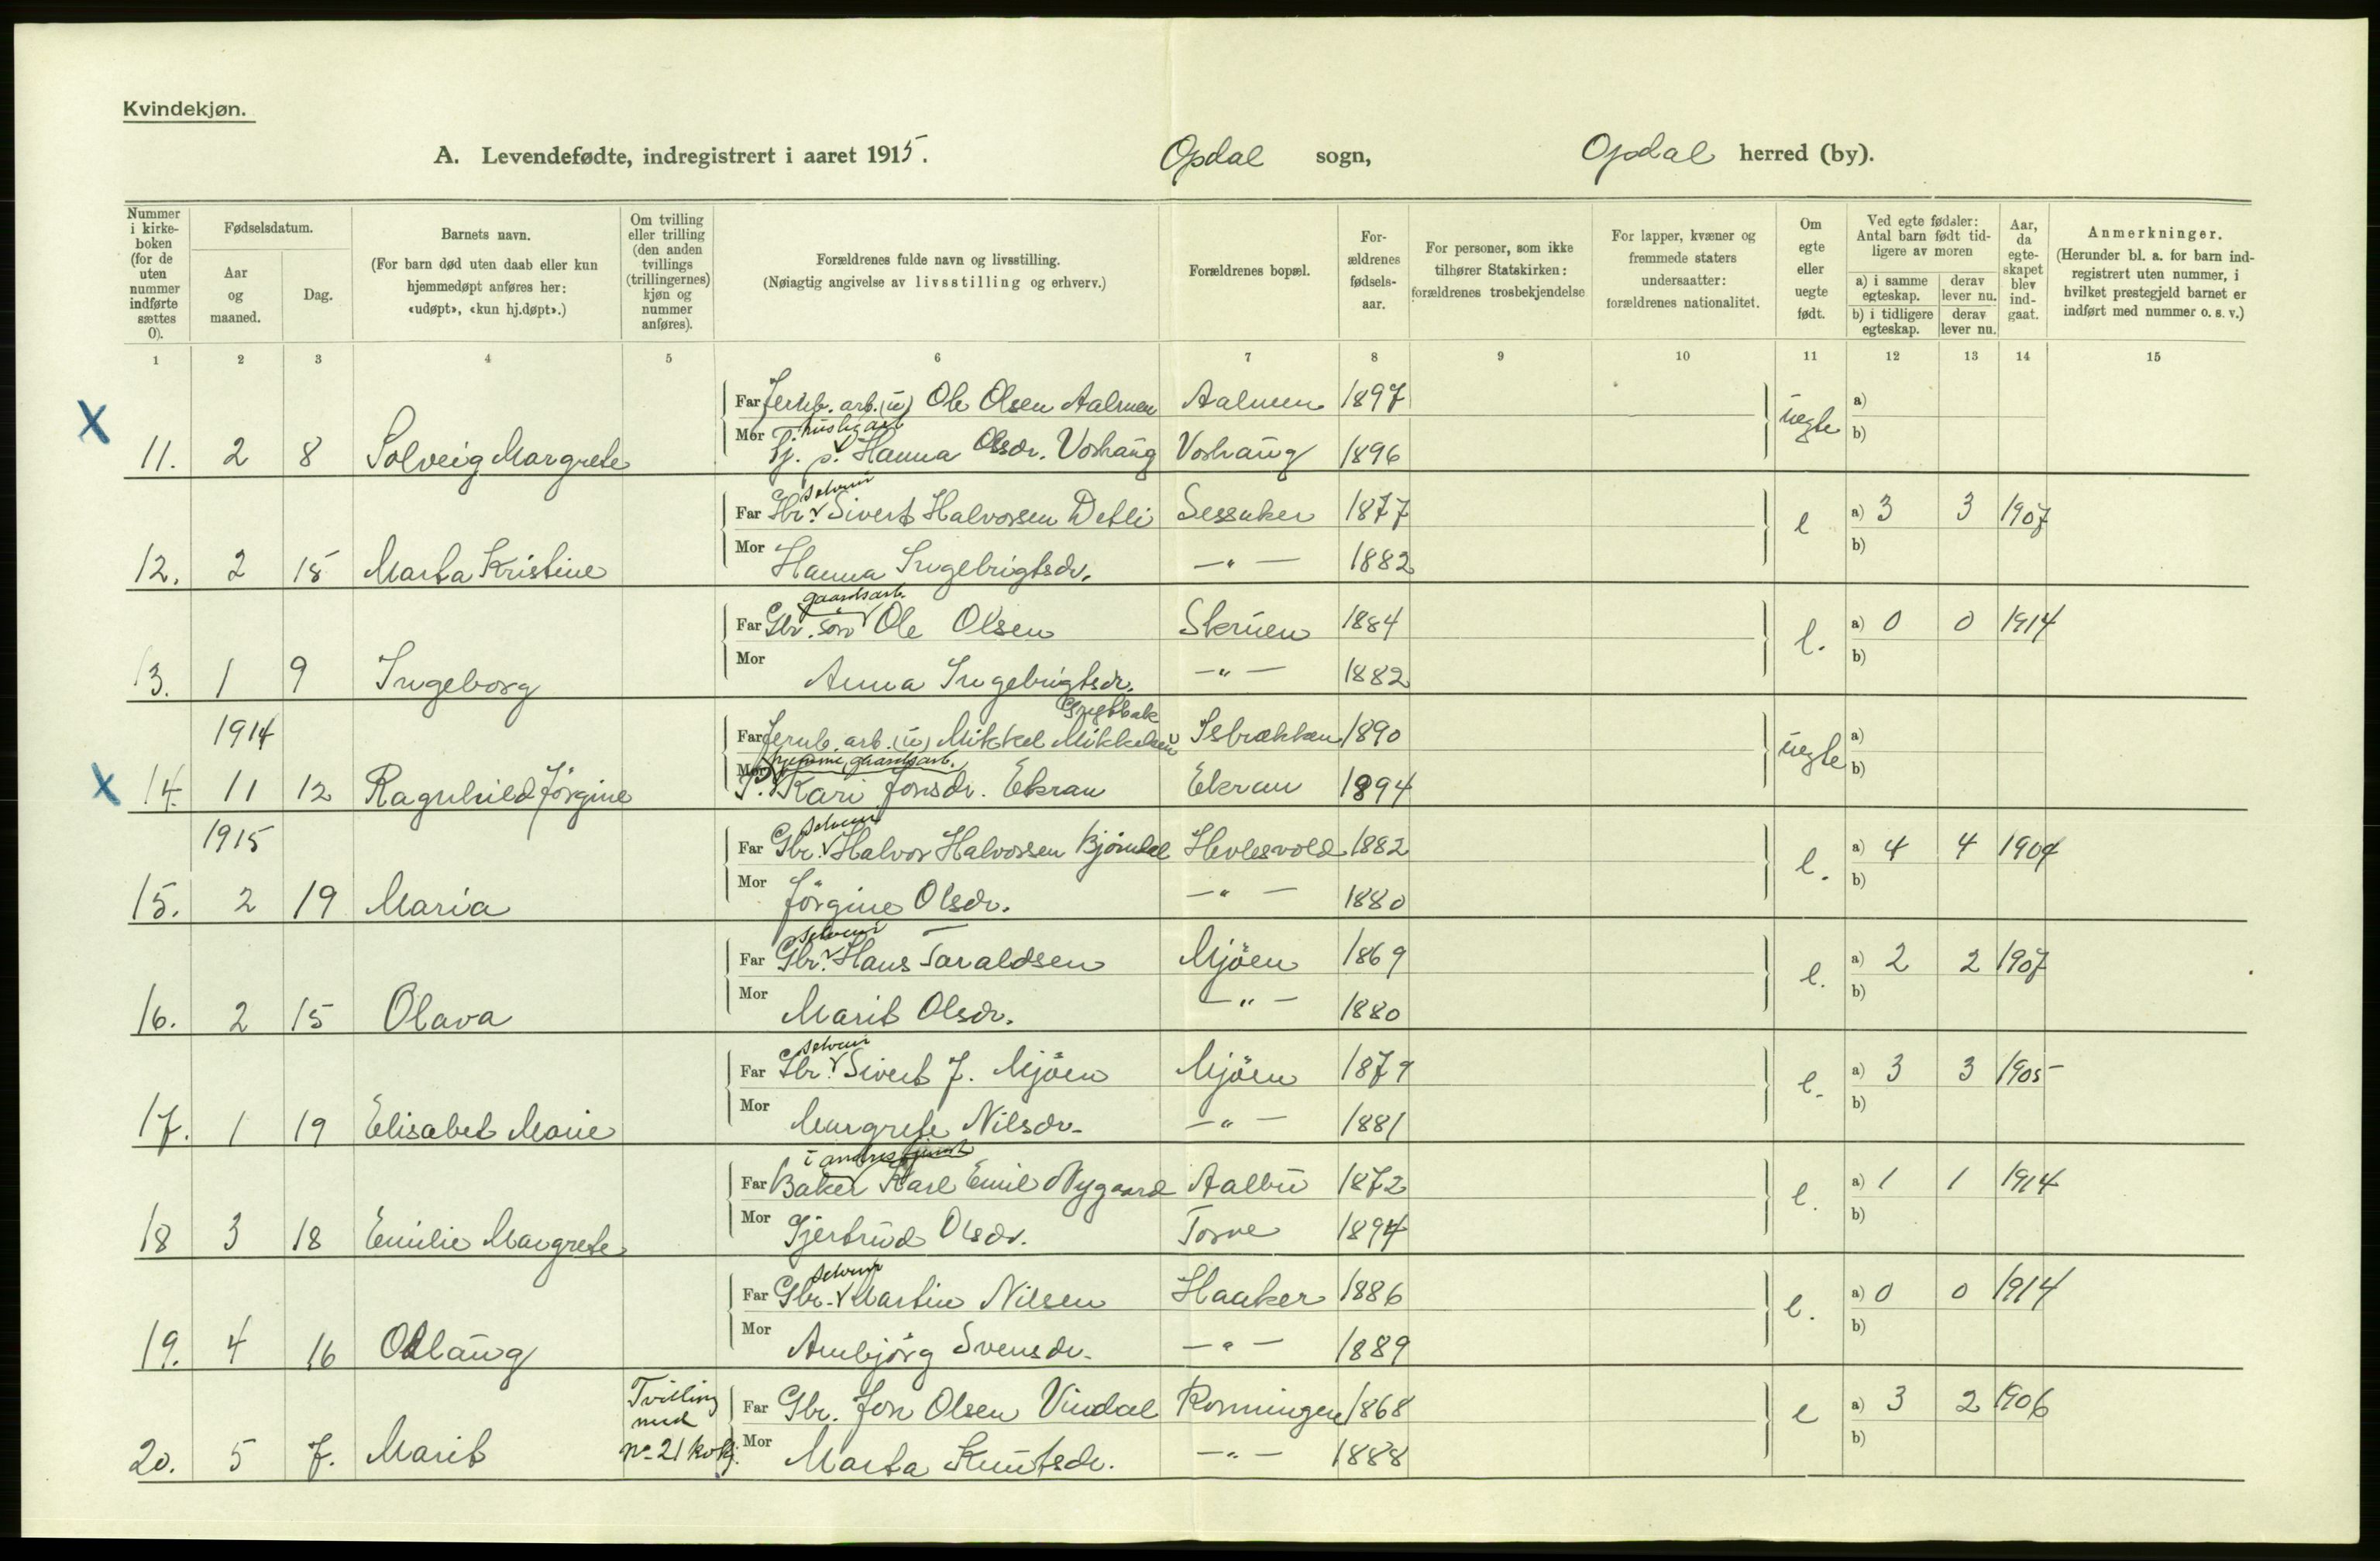 Kvindekjøn.
A. Levendefødte, indregistrert i aaret 1915. Opdal sogn, Opdal herred (by).
Nummer i kirke-boken (for de uten nummer indførte sættes 0).
Fødselsdatum.
Aar og maaned.
Dag.
Barnets navn.
(For barn død uten daab eller kun hjemmedøpt anføres her: «udøpt», «kun hj.døpt».)
Om tvilling eller trilling (den anden tvillings (trillingernes) kjøn og nummer anføres).
Forældrenes fulde navn og livsstilling.
(Nøiagtig angivelse av livsstilling og erhverv.)
Forældrenes bopæl.
For-ældrenes fødsels-aar.
For personer, som ikke tilhører Statskirken: forældrenes trosbekjendelse
For lapper, kvæner og fremmede staters undersaatter: forældrenes nationalitet.
Om egte eller uegte født.
Ved egte fødsler: Antal barn født tid-ligere av moren
a) i samme egteskap. derav lever nu.
b) i tidligere egteskap. derav lever nu.
Aar, da egte-skapet blev ind-gaat.
Anmerkninger.
(Herunder bl. a. for barn ind-registrert uten nummer, i hvilket prestegjeld barnet er indført med nummer o. s. v.)
1 2 3 4 5 6 7 8 9 10 11 12 13 14 15
Far Jernb. arb. (u) Ole Olsen Aalmen Aalmen 1897 uegte a)
X Mor huslig arb b)
11. 2 8 Solveig Margrete Tj. p. Hanna Olsdr. Voshaug Voshaug 1896
selveier
Far Gbr. Sivert Halvorsen Detli Sessaker 1877 e a) 3 3 1907
Mor b)
12. 2 15 Marta Kristine Hanna Ingebrigtsdr. —„— 1882
gaardsarb.
Far Gbr. søn Ole Olsen Skruen 1884 e. a) 0 0 1914
Mor b)
13. 1 9 Ingeborg Anna Ingebrigtsdr. —„— 1882
1914 Far Jernb. arb. (u) Mikkel Mikkelsen Isbrækken 1890 uegte a)
Mor hjemme, gaardsarb. b)
X 14. 11 12 Ragnhild Jørgine P. Kari Jonsdr. Ekran Ekran 1894
selveier
1915 Far Gbr. Halvor Halvorsen Bjørndal Hevlesvold 1882 e. a) 4 4 1904
Mor b)
15. 2 19 Maria Jørgine Olsdr. —„— 1880
selveier
Far Gbr. Hans Taraldsen Mjöen 1869 e. a) 2 2 1907
Mor b)
16. 2 15 Olava Marit Olsdr. —„— 1880
selveier
Far Gbr. Sivert J. Mjöen Mjöen 1879 e. a) 3 3 1905
Mor b)
17. 1 19 Elisabet Marie Margrete Nilsdr. —„— 1881
i andres tjeneste
Far Baker Karl Emil Nygaard Aalbu 1872 e. a) 1 1 1914
Mor b)
18 3 18 Emilie Margrete Gjertrud Olsdr. Torve 1894
selveier
Far Gbr. Martin Nilsen Haaker 1886 e. a) 0 0 1914
Mor b)
19. 4 16 Odlaug Annbjörg Svensdr. —„— 1889
Tvilling
med Far Gbr. Jon Olsen Vindal Ronningen 1868 e a) 3 2 1906
Mor b)
20. 5 7. Marit No 21 kvkj. Marta Knutsdr. —„— 1888